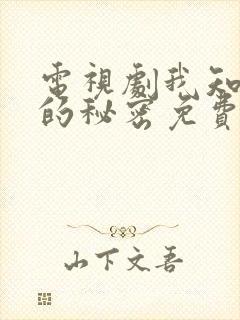 電視劇我知
的秘密免費
山下文吾